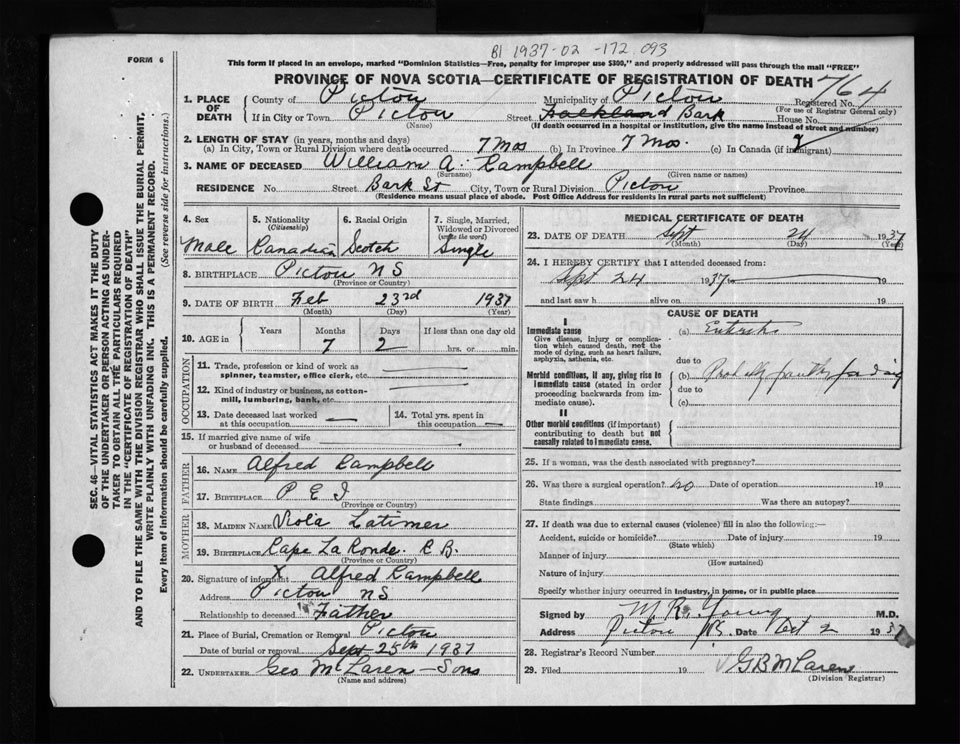 B1 1937-02 -172.093
FORM 6
This form if placed in an envelope, marked "Dominion Statistics—Free, penalty for improper use $300," and properly addressed will pass through the mail "FREE"
PROVINCE OF NOVA SCOTIA—CERTIFICATE OF REGISTRATION OF DEATH
Registered No. 764
(For use of Registrar General only)
1. PLACE OF DEATH
County of Pictou Municipality of Pictou
If in City or Town Pictou Street Falkland Bank House No.
(Name) (If death occurred in a hospital or institution, give the name instead of street and number)
2. LENGTH OF STAY (in years, months and days)
(a) In City, Town or Rural Division where death occurred 7 Mos (b) In Province 7 Mos. (c) In Canada (if immigrant)
3. NAME OF DECEASED William A. Campbell
(Surname) (Given name or names)
RESIDENCE No. Street Bank St City, Town or Rural Division Pictou Province
(Residence means usual place of abode. Post Office Address for residents in rural parts not sufficient)
4. Sex Male
5. Nationality (Citizenship) Canadian
6. Racial Origin Scotch
7. Single, Married, Widowed or Divorced (write the word) Single
8. BIRTHPLACE Pictou NS
(Province or Country)
9. DATE OF BIRTH Feb 23rd 1937
(Month) (Day) (Year)
10. AGE in Years Months Days If less than one day old
7 2 hrs. or min.
OCCUPATION
11. Trade, profession or kind of work as spinner, teamster, office clerk, etc.
12. Kind of industry or business, as cotton-mill, lumbering, bank, etc.
13. Date deceased last worked at this occupation
14. Total yrs. spent in this occupation
15. If married give name of wife or husband of deceased
FATHER
16. NAME Alfred Campbell
17. BIRTHPLACE P E I
(Province or Country)
MOTHER
18. MAIDEN NAME Viola Latimer
19. BIRTHPLACE Cape La Ronde. C.B.
(Province or Country)
20. Signature of informant X Alfred Campbell
Address Pictou NS
Relationship to deceased Father
21. Place of Burial, Cremation or Removal Pictou
Date of burial or removal Sept 25th 1937
22. UNDERTAKER Geo McLaren—Sons
(Name and address)
MEDICAL CERTIFICATE OF DEATH
23. DATE OF DEATH Sept 24 1937
(Month) (Day) (Year)
24. I HEREBY CERTIFY that I attended deceased from:
Sept 24 1937 19
and last saw h alive on 19
CAUSE OF DEATH
I
Immediate cause (a)
Give disease, injury or complication which caused death, not the mode of dying, such as heart failure, asphyxia, asthenia, etc.
due to
Morbid conditions, if any, giving rise to immediate cause (stated in order proceeding backwards from immediate cause). (b) Probably faulty feeding
due to
(c)
II
Other morbid conditions (if important) contributing to death but not causally related to immediate cause.
25. If a woman, was the death associated with pregnancy?
26. Was there a surgical operation? no Date of operation 19
State findings Was there an autopsy?
27. If death was due to external causes (violence) fill in also the following:—
Accident, suicide or homicide? Date of injury 19
(State which)
Manner of injury
(How sustained)
Nature of injury
Specify whether injury occurred in industry, in home, or in public place
Signed by M. R. Young M.D.
Address Pictou NS. Date Oct 2 1937
28. Registrar's Record Number
29. Filed 19 G B McLaren
(Division Registrar)
SEC. 46—VITAL STATISTICS ACT MAKES IT THE DUTY
OF THE UNDERTAKER OR PERSON ACTING AS UNDER-
TAKER TO OBTAIN ALL THE PARTICULARS REQUIRED
IN THE "CERTIFICATE OF REGISTRATION OF DEATH"
AND TO FILE THE SAME WITH THE DIVISION REGISTRAR WHO SHALL ISSUE THE BURIAL PERMIT,
WRITE PLAINLY WITH UNFADING INK. THIS IS A PERMANENT RECORD.
Every item of information should be carefully supplied. (See reverse side for instructions.)